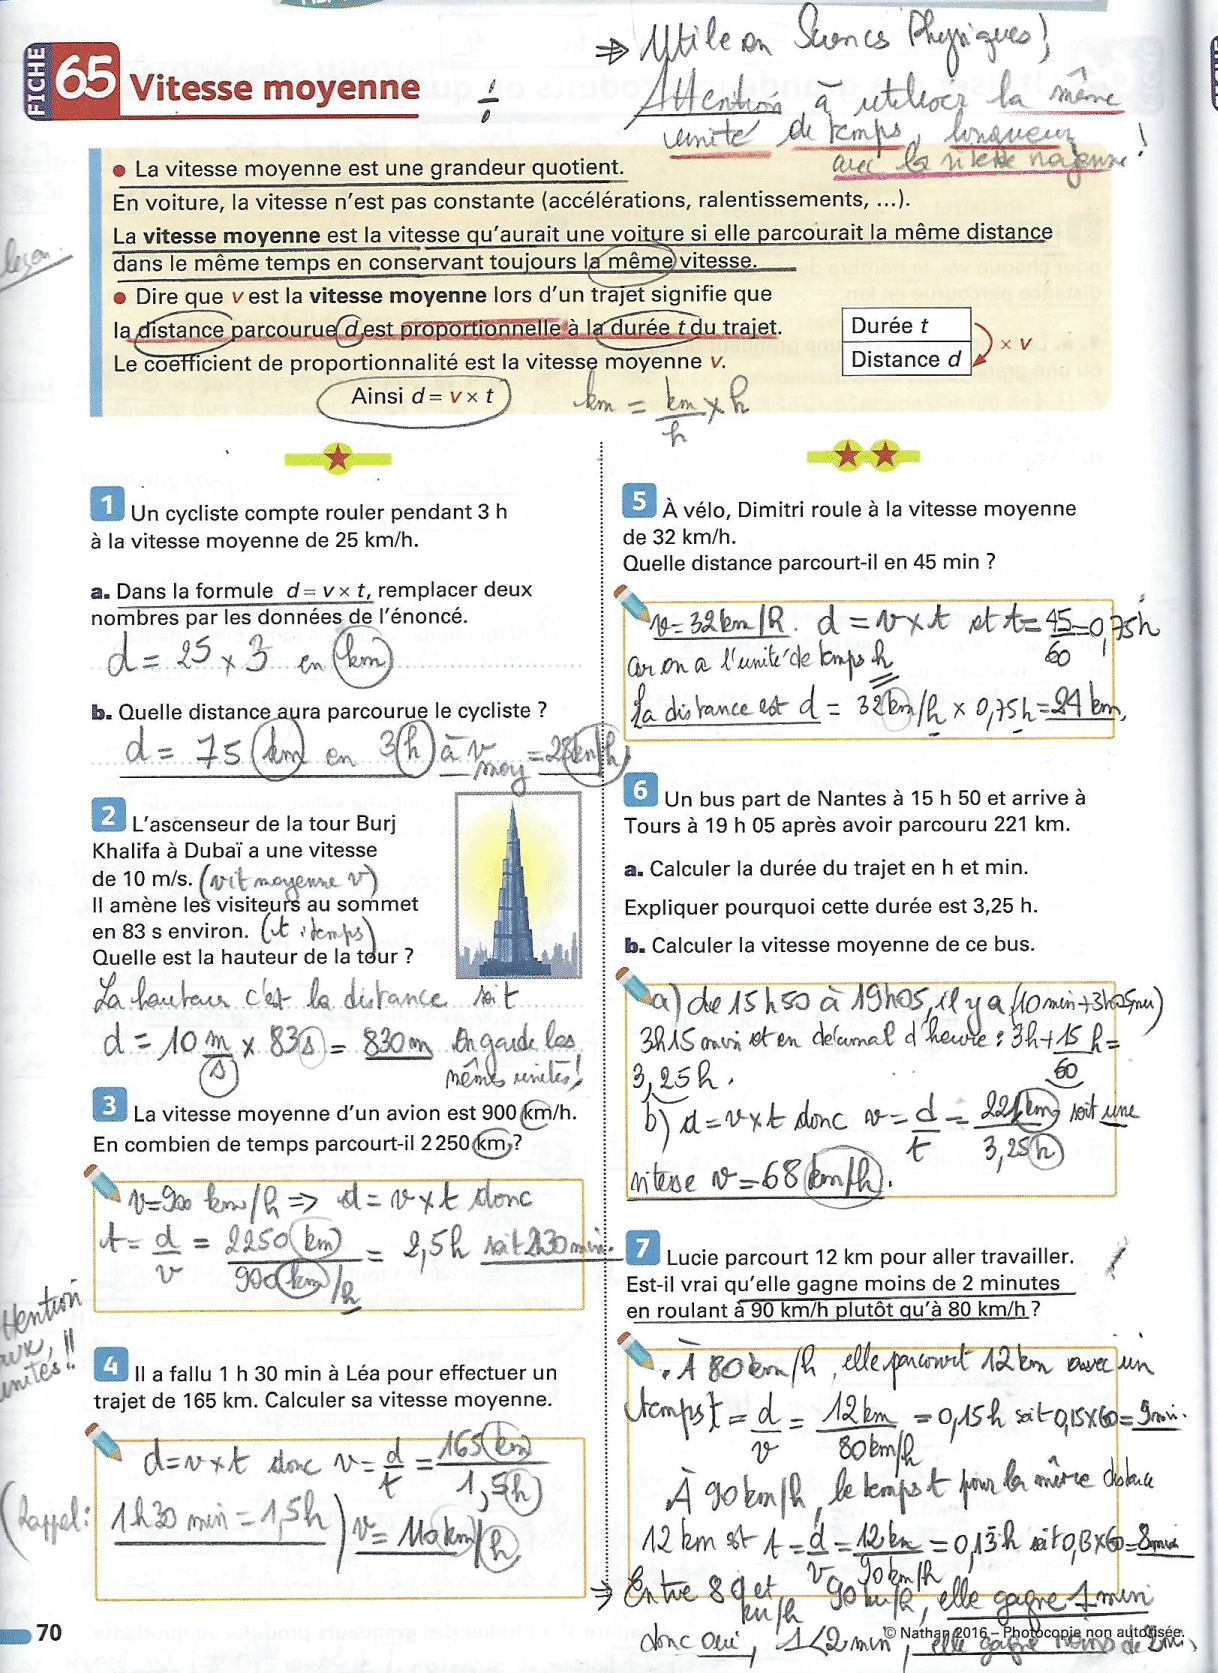 ⇒ Utile en Sciences Physiques !
FICHE 65 Vitesse moyenne :
Attention à utiliser la même
unité de temps, longueur
avec la vitesse moyenne !
• La vitesse moyenne est une grandeur quotient.
En voiture, la vitesse n'est pas constante (accélérations, ralentissements, …).
La vitesse moyenne est la vitesse qu'aurait une voiture si elle parcourait la même distance
leçon
dans le même temps en conservant toujours la même vitesse.
• Dire que v est la vitesse moyenne lors d'un trajet signifie que
la distance parcourue d est proportionnelle à la durée t du trajet.
Le coefficient de proportionnalité est la vitesse moyenne v.
Durée t
Distance d
× v
Ainsi d = v × t
km = km/h × h
1 Un cycliste compte rouler pendant 3 h
à la vitesse moyenne de 25 km/h.
a. Dans la formule d = v × t, remplacer deux
nombres par les données de l'énoncé.
d = 25 × 3 en km
b. Quelle distance aura parcourue le cycliste ?
d = 75 km en 3 h à v moy = 25 km/h
2 L'ascenseur de la tour Burj
Khalifa à Dubaï a une vitesse
de 10 m/s. (vit moyenne v)
Il amène les visiteurs au sommet
en 83 s environ. (t : temps)
Quelle est la hauteur de la tour ?
La hauteur c'est la distance soit
d = 10 m/s × 83 s = 830 m On garde les
mêmes unités !
3 La vitesse moyenne d'un avion est 900 km/h.
En combien de temps parcourt-il 2 250 km ?
v = 900 km/h ⇒ d = v × t donc
t = d/v = 2250 km / 900 km/h = 2,5 h soit 2h30 min.
Attention
aux
unités !!
4 Il a fallu 1 h 30 min à Léa pour effectuer un
trajet de 165 km. Calculer sa vitesse moyenne.
d = v × t donc v = d/t = 165 km / 1,5 h
(Rappel : 1h30 min = 1,5h) v = 110 km/h
5 À vélo, Dimitri roule à la vitesse moyenne
de 32 km/h.
Quelle distance parcourt-il en 45 min ?
v = 32 km/h. d = v × t et t = 45/60 = 0,75 h
car on a l'unité de temps h
La distance est d = 32 km/h × 0,75 h = 24 km.
6 Un bus part de Nantes à 15 h 50 et arrive à
Tours à 19 h 05 après avoir parcouru 221 km.
a. Calculer la durée du trajet en h et min.
Expliquer pourquoi cette durée est 3,25 h.
b. Calculer la vitesse moyenne de ce bus.
a) de 15h50 à 19h05, il y a (10 min + 3h05 min)
3h15 min et en décimal d'heure : 3h + 15/60 h =
3,25 h.
b) d = v × t donc v = d/t = 221 km / 3,25 h soit une
vitesse v = 68 km/h.
7 Lucie parcourt 12 km pour aller travailler.
Est-il vrai qu'elle gagne moins de 2 minutes
en roulant à 90 km/h plutôt qu'à 80 km/h ?
. À 80 km/h, elle parcourt 12 km avec un
temps t = d/v = 12 km / 80 km/h = 0,15 h soit 0,15 × 60 = 9 min.
À 90 km/h, le temps t pour la même distance
12 km est t = d/v = 12 km / 90 km/h = 0,13 h soit 0,13 × 60 = 8 min
⇒ Entre 80 km/h et 90 km/h, elle gagne 1 min
donc oui, 1 < 2 min, elle gagne moins de 2 min.
70
© Nathan 2016 – Photocopie non autorisée.